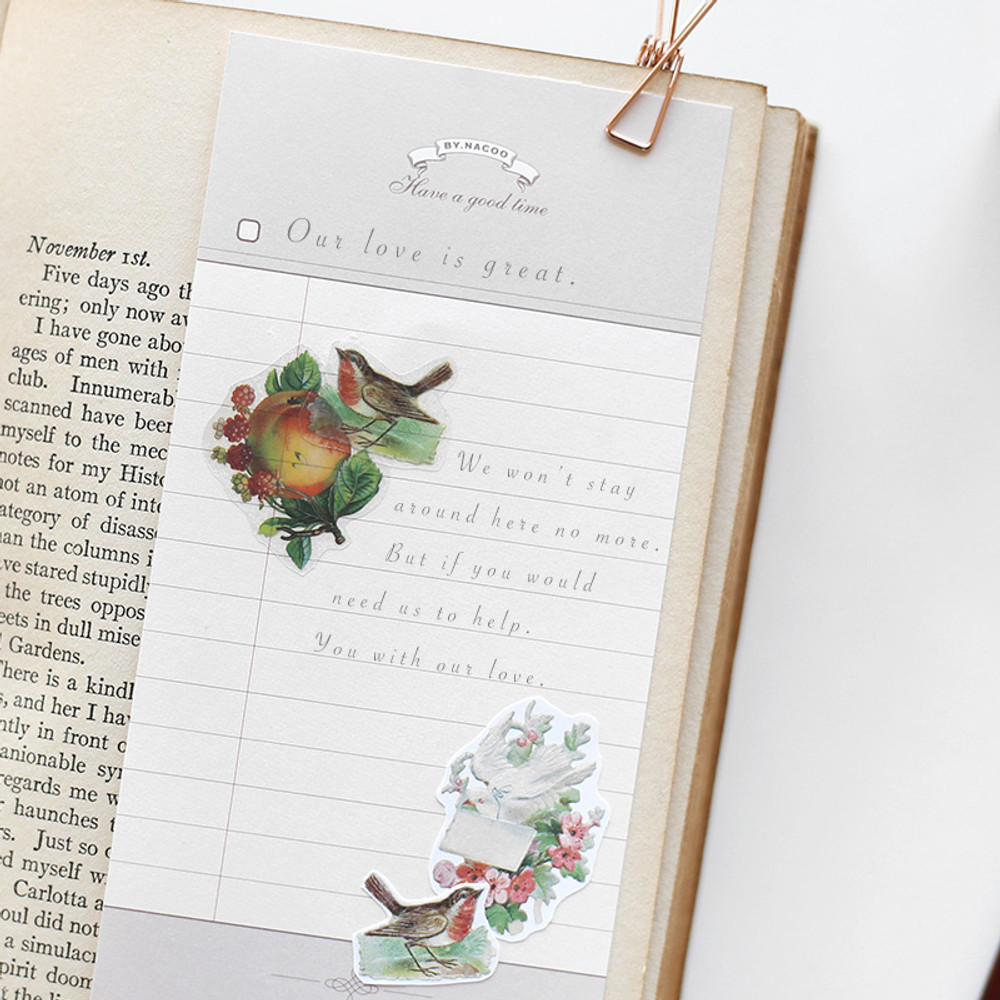 BY.NACOO
Have a good time
Our love is great.
We won't stay
around here no more.
But if you would
need us to help.
You with our love.
November 1st.
Five days ago
ering; only now
I have gone
ages of men with
club. Innumerab
scanned have been
myself to the
notes for my
not an atom of
ategory of
an the columns
ve stared stupidly
the trees
eets in dull
Gardens.
here is a
s, and her I
ntly in front
anionable
regards me
haunches
rs. Just so
ed myself
Carlotta
oul did not
a
pirit